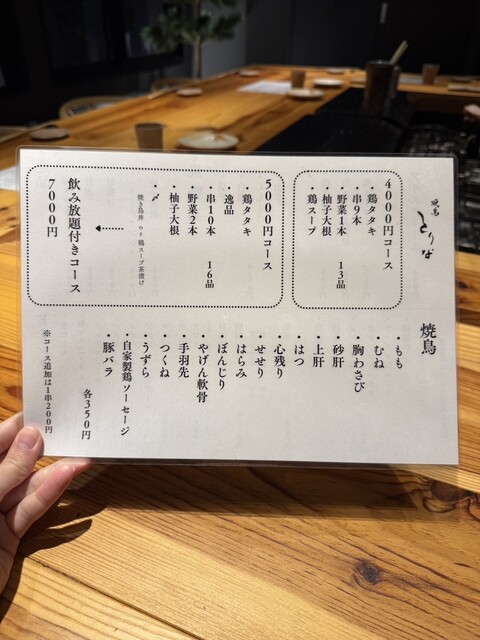 焼鳥 とりな
4000円コース
・鶏タタキ
・串9本
・野菜1本 13品
・柚子大根
・鶏スープ
5000円コース
・鶏タタキ
・逸品
・串10本 16品
・野菜2本
・柚子大根
・〆
焼き鳥丼 or 鶏スープ茶漬け
飲み放題付きコース
7000円
焼鳥
・もも
・むね
・胸わさび
・砂肝
・上肝
・はつ
・心残り
・せせり
・はらみ
・ぼんじり
・やげん軟骨
・手羽先
・つくね
・うずら
・自家製鶏ソーセージ
・豚バラ
各350円
※コース追加は1串200円